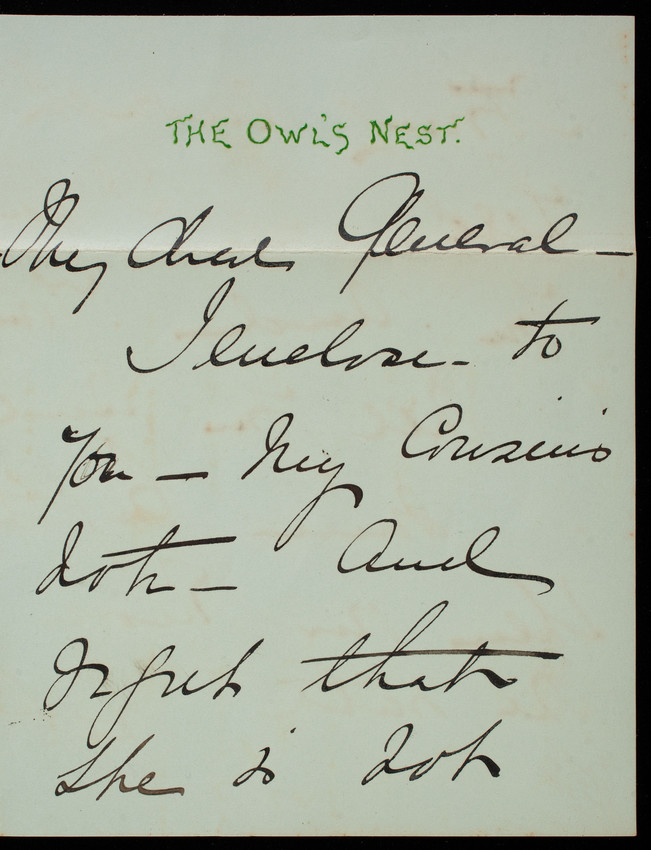 THE OWL'S NEST.
My dear General —
I enclose - to
you — My Cousin's
Note — And
regret that
she is not